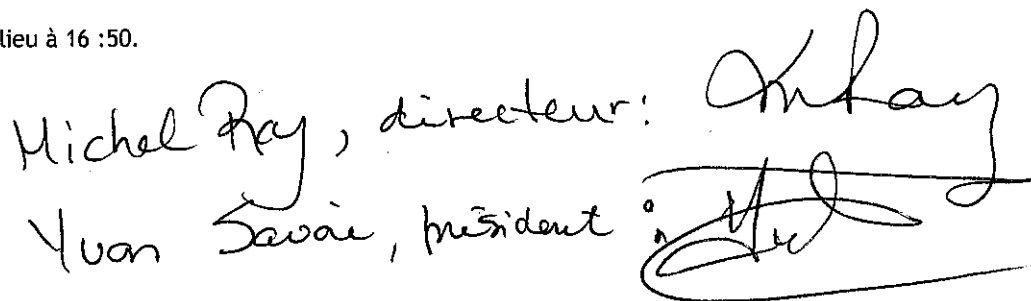 lieu à 16 :50.
Michel Ray, directeur:
Yvon Savoie, président :